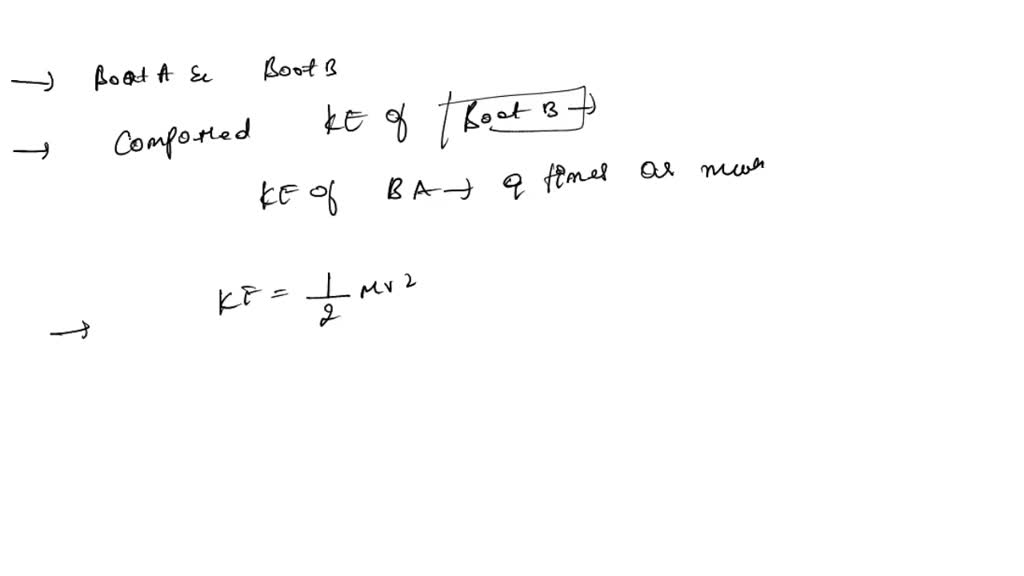 → Boat A & Boat B
→ Compared KE of Boat B →
KE of BA → 9 times as muc
KE = 1/2 mv2
→